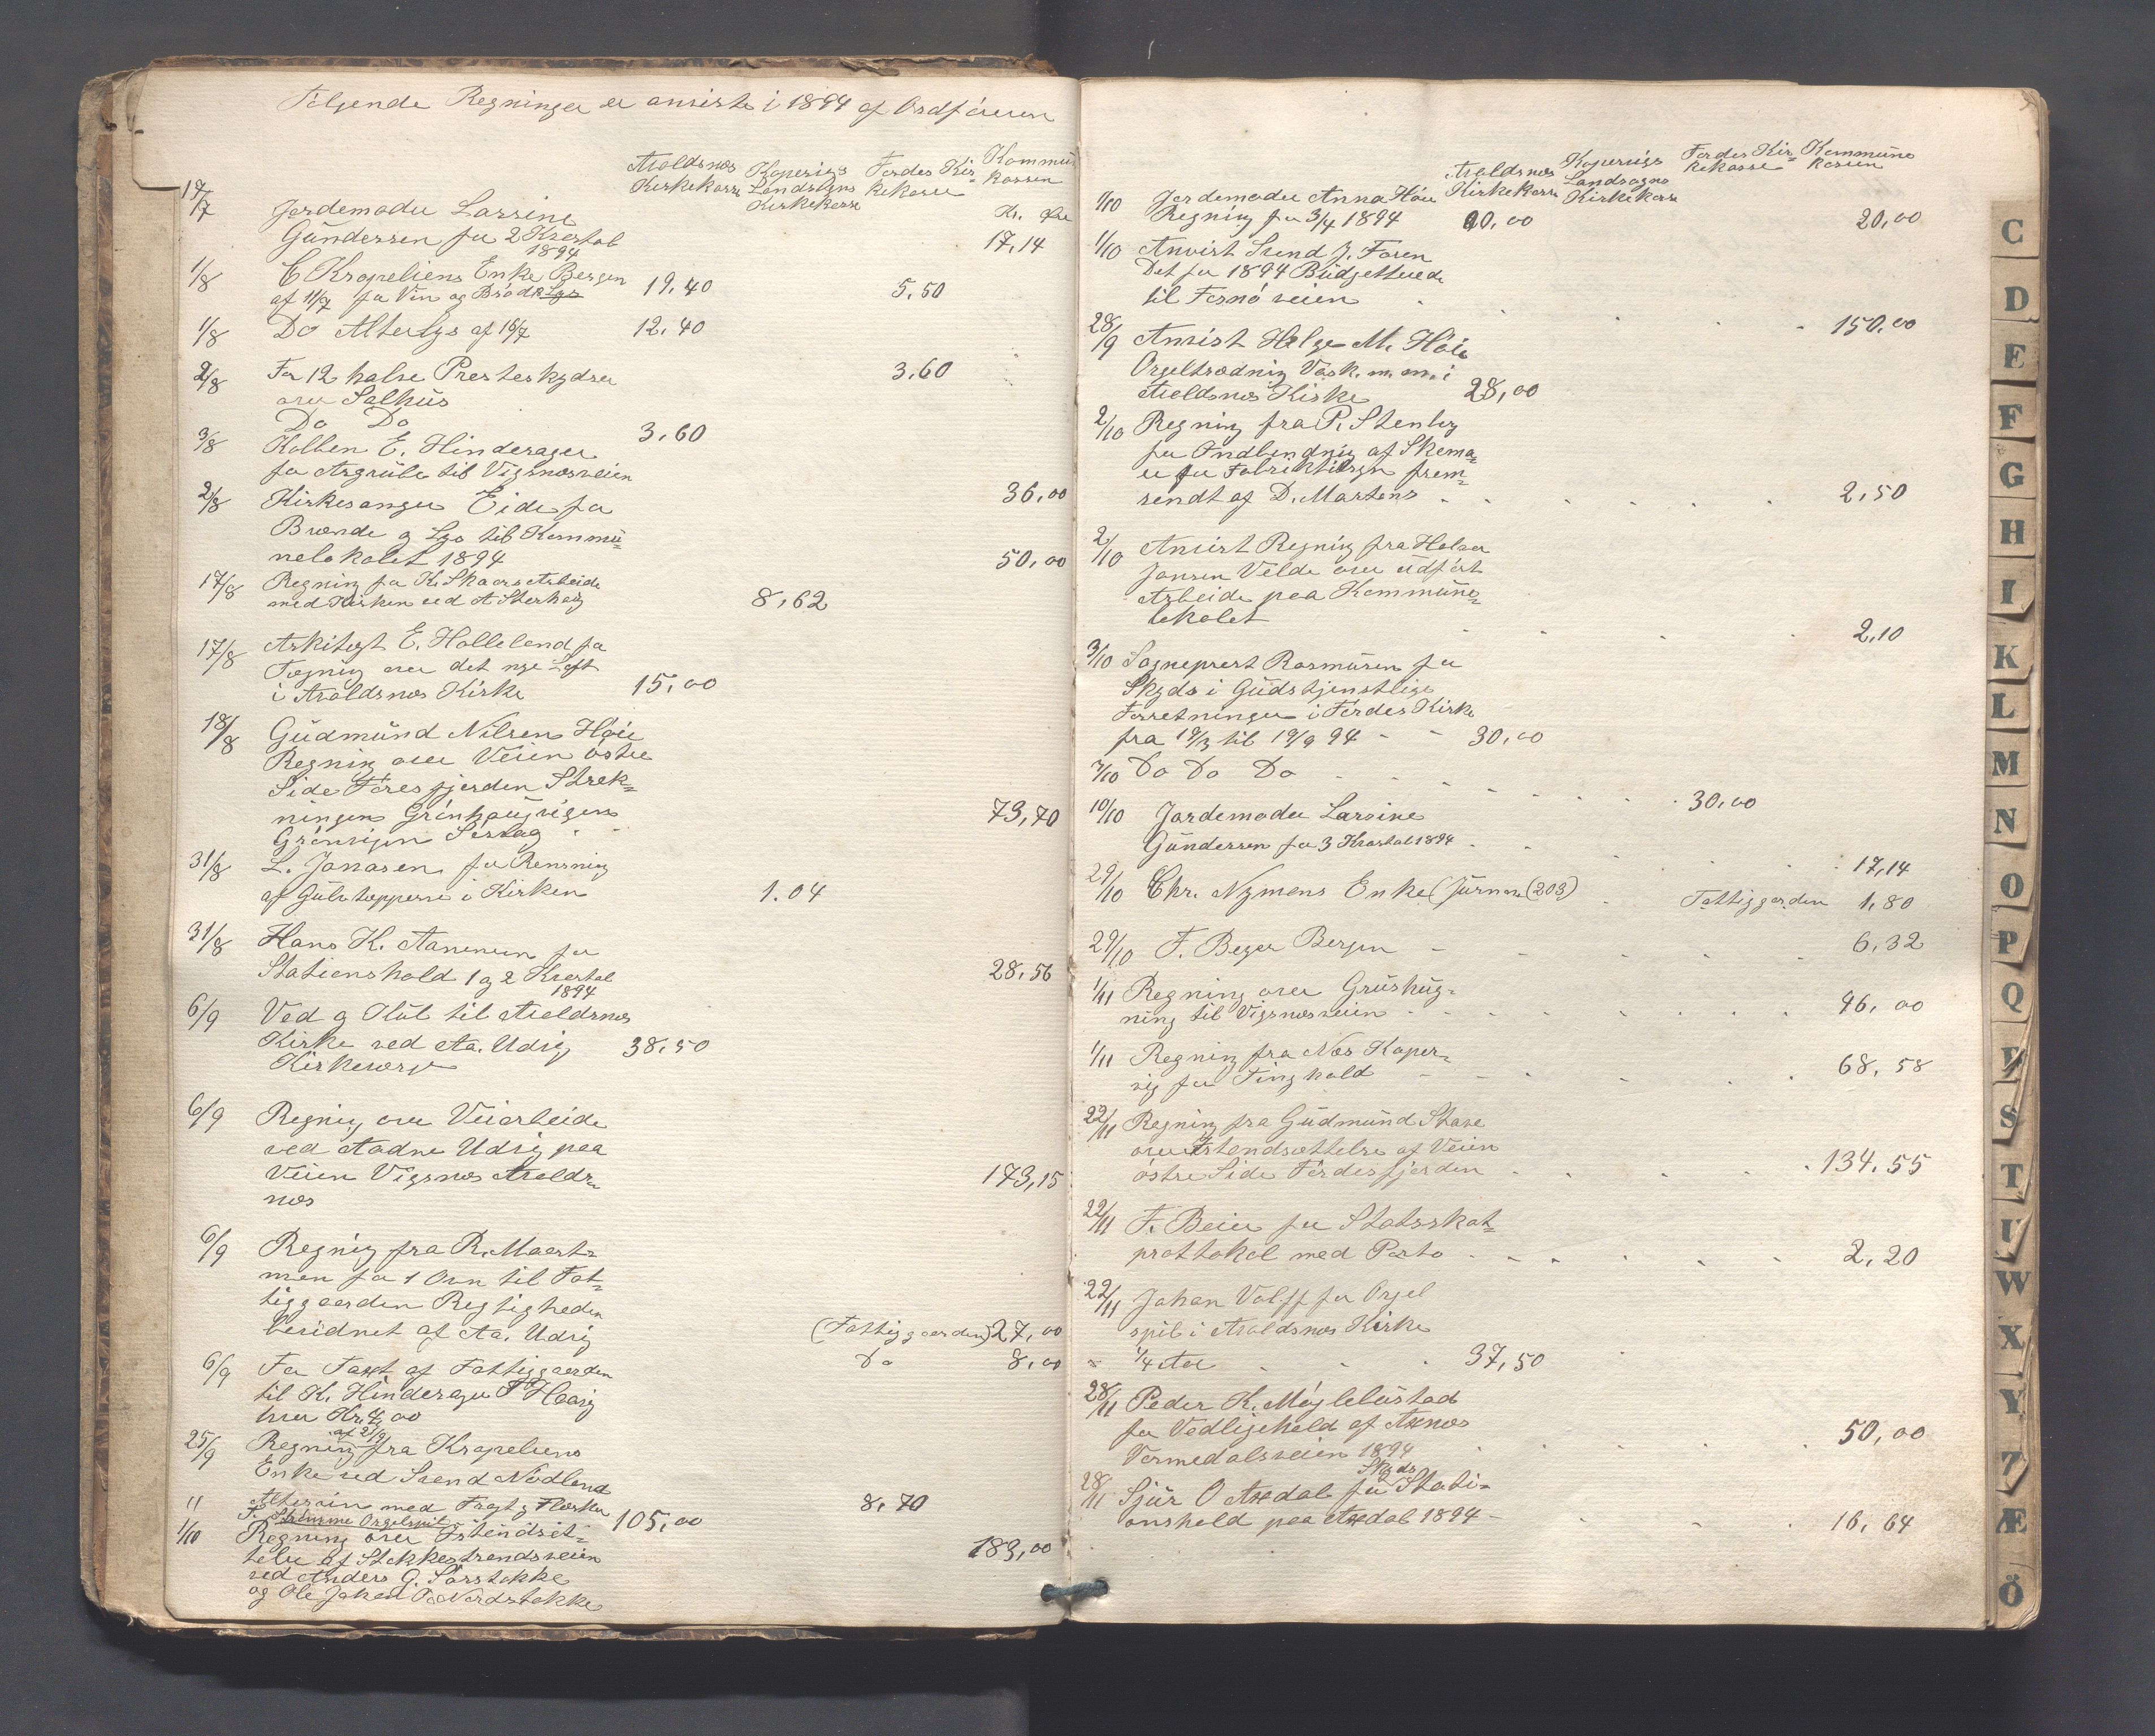 Følgende Regninger er anviste i 1894 af Ordføreren
Avaldsnæs Kirkekasse
Kopervigs Landsogns Kirkekasse
Førdes Kirkekasse
Kommunekassen
Kr. Øre
17/7 Jordemoder Larsine
Gundersen for 2 Kvartal
1894 17,14
1/8 C Kropeliens Enke Bergen
af 11/7 for Vin og Brød Lys 19,40 5,50
1/8 Do Alterlys af 16/7 12,40
2/8 For 12 halve Presteskydser 3,60
over Salhus
Do Do 3,60
3/8 Kolben E. Hinderager
for Avgrube til Vigsnæsveien 36,00
2/8 Kirkesanger Eide for
Brænde og Lys til Kommü=
nelokalet 1894 50,00
17/8 Regning for K. Skaars Arbeide
med Kirken ved A Storhaug 8,62
17/8 Arkitegt E. Halleland for
Tegning over det nye Loft
i Avaldsnæs Kirke 15,00
18/8 Güdmünd Nilsen Høie
Regning over Veien østre
Side Føresfjorden Strek=
ningen Grønhaugvigen
Grønvigen 73,70
31/8 L. Jonasen for Rensning
af Gülvtepperne i Kirken 1.04
31/8 Hans K. Aanensen for
Stationshold 1 og 2 Kvartal
1894 28,56
6/9 Ved og Kül til Avaldsnæs
Kirke ved Aa. Udvig 38,50
Kirkeverge
6/9 Regning over Veiarbeide
ved Aadne Udvig paa
Veien Vigsnæs Avalds=
næs 173,15
6/9 Regning fra R. Maart=
men for 1 Ovn til Fat=
tiggaarden Regtigheden
bevidnet af Aa. Udvig (Fattiggaarden) 27,00
6/9 For Taxt af Fattiggaarden Do 8,00
til K. Hinderager
hver Kr. 4,00
af 21/9
25/9 Regning fra Kropeliens
Enke ved Svend Nødland
Altervin med Fragt og Flasker 8,70
" Orgelspil 105,00
1/10 Regning over Istandset=
telse af Stokkestrandsveien 183,00
ved Anders G. Sørstokke
og Ole Johan O. Nordstokke
Avaldsnæs Kirkekasse
Kopervigs Landsogns Kirkekasse
Førdes Kirkekasse
Kommunekassen
1/10 Jordemoder Anna Høie
Regning for 3/4 1894 20,00 20,00
1/10 Anvist Svend J. Føren
Det for 1894 Büdgetterede
til Fosnø veien 150,00
28/9 Anvist Helge M. Høie
Orgeltrædning Vask. m. m. i
Avaldsnæs Kirke 28,00
2/10 Regning fra P. Stenberg
for Indbinding af Skema=
er for Fabriktilsyn frem=
sendt af D. Martens 2,50
2/10 Anvist Regning fra Halvor
Jansen Velde over udført
Arbeide paa Kommüne=
lokalet 2,10
3/10 Sogneprest Rasmüsen for
Skyds i Güdstjenstlige
Forretninger i Førdes Kirke
fra 19/3 til 19/9 94 30,00
3/10 Do Do Do 30,00
10/10 Jordemoder Larsine
Gündersen for 3 Kvartal 1894 17,14
29/10 Chr. Nymens Enke (203) Fattiggarden 1,80
29/10 F. Beyer Bergen 6,32
1/11 Regning over Grüshug=
ning til Vigsnæsveien 96,00
1/11 Regning fra Næs Koper=
vig for Tinghold 68,58
22/11 Regning fra Güdmünd Stave
over Istandsættelse af Veien
østre Side Førdesfjorden 134,55
22/11 F. Beier for Statsskat=
prottokol med Porto 2,20
22/11 Johan Valff for Orgel
spil i Avaldsnæs Kirke
1/4 Aar 37,50
28/11 Peder K. Møglebüstad
for Vedligehold af Axnæs
Vormedalsveien 1894 50,00
28/11 Sjür O Axdal for Skyds Stati=
onshold paa Axdal 1894 16,64
C
D
E
F
G
H
I
K
L
M
N
O
P
Q
R
S
T
U
W
X
Y
Z
Æ
Ö